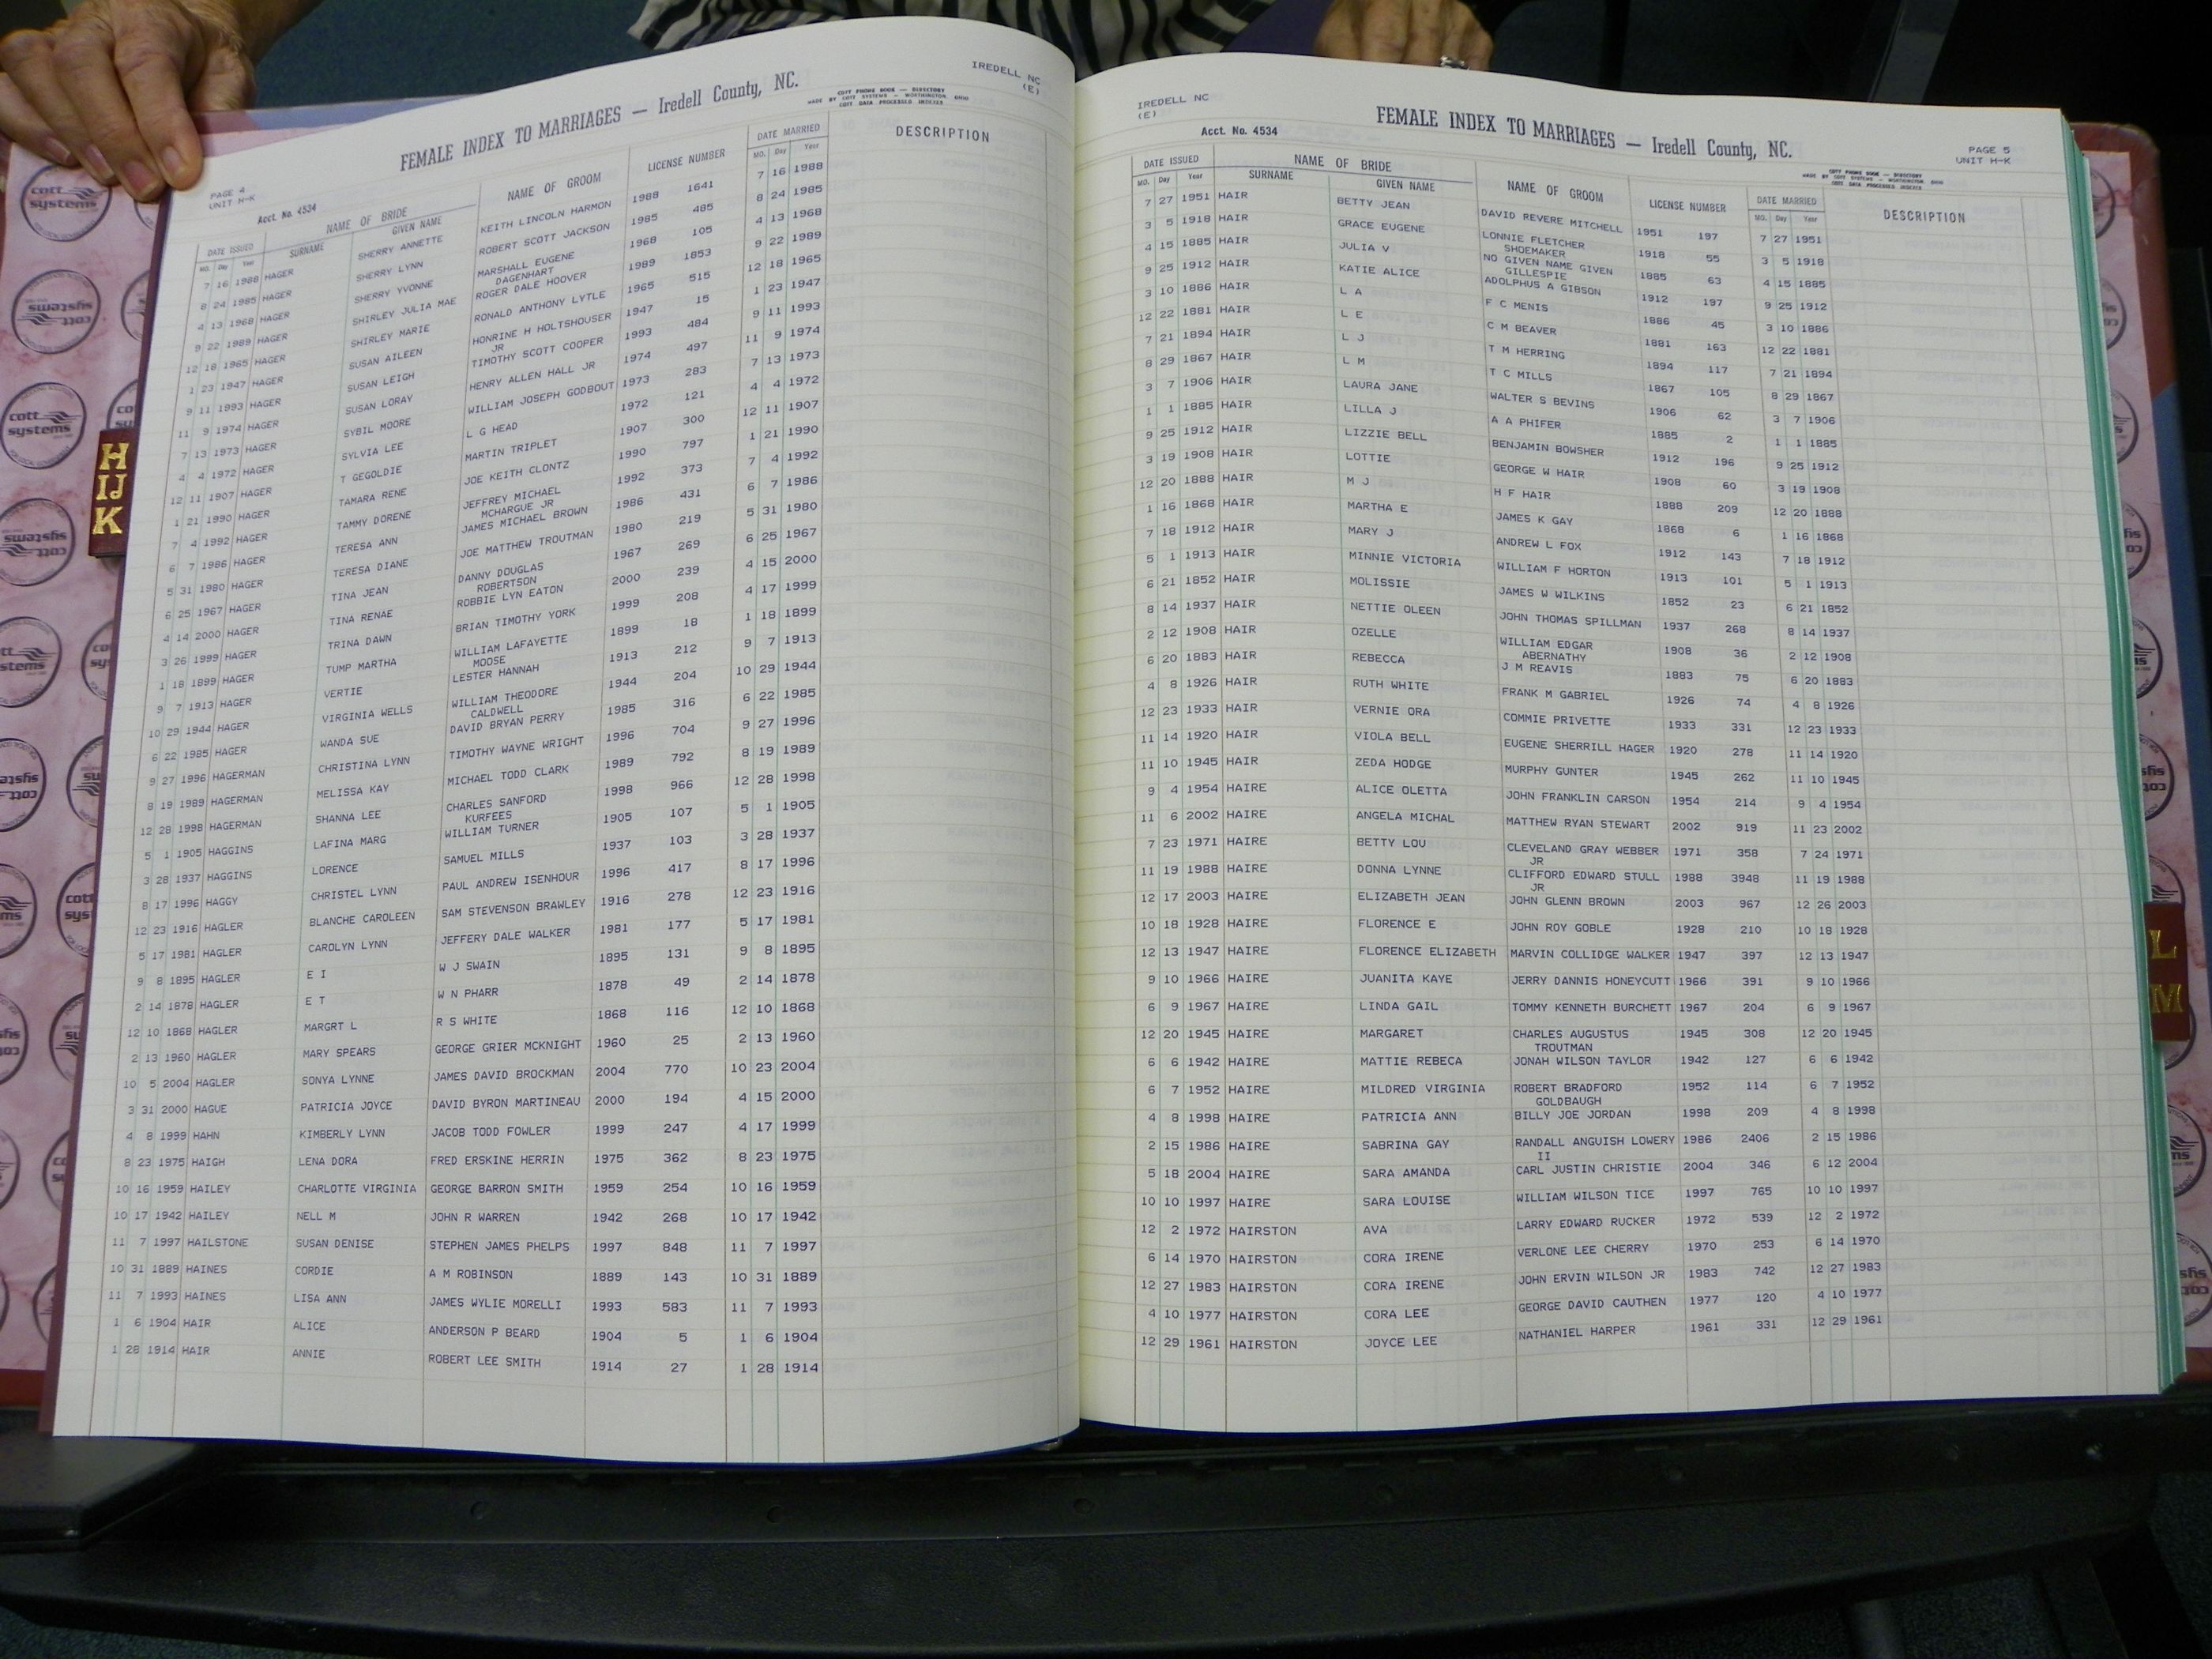 IREDELL NC
(E)
FEMALE INDEX TO MARRIAGES — Iredell County, NC.
COTT PHONE BOOK — DIRECTORY
MADE BY COTT SYSTEMS — WORTHINGTON OHIO
COTT DATA PROCESSED INDEXES
PAGE 4
UNIT H-K
Acct. No. 4534
DATE ISSUED NAME OF BRIDE NAME OF GROOM LICENSE NUMBER DATE MARRIED DESCRIPTION
MO. Day Year SURNAME GIVEN NAME MO. Day Year
7 16 1988 HAGER SHERRY ANNETTE KEITH LINCOLN HARMON 1988 1641 7 16 1988
8 24 1985 HAGER SHERRY LYNN ROBERT SCOTT JACKSON 1985 485 8 24 1985
4 13 1968 HAGER SHERRY YVONNE MARSHALL EUGENE 1968 105 4 13 1968
DAGENHART
9 22 1989 HAGER SHIRLEY JULIA MAE ROGER DALE HOOVER 1989 1853 9 22 1989
12 18 1965 HAGER SHIRLEY MARIE RONALD ANTHONY LYTLE 1965 515 12 18 1965
1 23 1947 HAGER SUSAN AILEEN HONRINE H HOLTSHOUSER 1947 15 1 23 1947
JR
9 11 1993 HAGER SUSAN LEIGH TIMOTHY SCOTT COOPER 1993 484 9 11 1993
11 9 1974 HAGER SUSAN LORAY HENRY ALLEN HALL JR 1974 497 11 9 1974
7 13 1973 HAGER SYBIL MOORE WILLIAM JOSEPH GODBOUT 1973 283 7 13 1973
4 4 1972 HAGER SYLVIA LEE L G HEAD 1972 121 4 4 1972
12 11 1907 HAGER T GEGOLDIE MARTIN TRIPLET 1907 300 12 11 1907
1 21 1990 HAGER TAMARA RENE JOE KEITH CLONTZ 1990 797 1 21 1990
7 4 1992 HAGER TAMMY DORENE JEFFREY MICHAEL 1992 373 7 4 1992
MCHARGUE JR
6 7 1986 HAGER TERESA ANN JAMES MICHAEL BROWN 1986 431 6 7 1986
5 31 1980 HAGER TERESA DIANE JOE MATTHEW TROUTMAN 1980 219 5 31 1980
6 25 1967 HAGER TINA JEAN DANNY DOUGLAS 1967 269 6 25 1967
ROBERTSON
4 14 2000 HAGER TINA RENAE ROBBIE LYN EATON 2000 239 4 15 2000
3 26 1999 HAGER TRINA DAWN BRIAN TIMOTHY YORK 1999 208 4 17 1999
1 18 1899 HAGER TUMP MARTHA WILLIAM LAFAYETTE 1899 18 1 18 1899
MOOSE
9 7 1913 HAGER VERTIE LESTER HANNAH 1913 212 9 7 1913
10 29 1944 HAGER VIRGINIA WELLS WILLIAM THEODORE 1944 204 10 29 1944
CALDWELL
6 22 1985 HAGER WANDA SUE DAVID BRYAN PERRY 1985 316 6 22 1985
9 27 1996 HAGERMAN CHRISTINA LYNN TIMOTHY WAYNE WRIGHT 1996 704 9 27 1996
8 19 1989 HAGERMAN MELISSA KAY MICHAEL TODD CLARK 1989 792 8 19 1989
12 28 1998 HAGERMAN SHANNA LEE CHARLES SANFORD 1998 966 12 28 1998
KURFEES
5 1 1905 HAGGINS LAFINA MARG WILLIAM TURNER 1905 107 5 1 1905
3 28 1937 HAGGINS LORENCE SAMUEL MILLS 1937 103 3 28 1937
8 17 1996 HAGGY CHRISTEL LYNN PAUL ANDREW ISENHOUR 1996 417 8 17 1996
12 23 1916 HAGLER BLANCHE CAROLEEN SAM STEVENSON BRAWLEY 1916 278 12 23 1916
5 17 1981 HAGLER CAROLYN LYNN JEFFERY DALE WALKER 1981 177 5 17 1981
9 8 1895 HAGLER E I W J SWAIN 1895 131 9 8 1895
2 14 1878 HAGLER E T W N PHARR 1878 49 2 14 1878
12 10 1868 HAGLER MARGRT L R S WHITE 1868 116 12 10 1868
2 13 1960 HAGLER MARY SPEARS GEORGE GRIER MCKNIGHT 1960 25 2 13 1960
10 5 2004 HAGLER SONYA LYNNE JAMES DAVID BROCKMAN 2004 770 10 23 2004
3 31 2000 HAGUE PATRICIA JOYCE DAVID BYRON MARTINEAU 2000 194 4 15 2000
4 8 1999 HAHN KIMBERLY LYNN JACOB TODD FOWLER 1999 247 4 17 1999
8 23 1975 HAIGH LENA DORA FRED ERSKINE HERRIN 1975 362 8 23 1975
10 16 1959 HAILEY CHARLOTTE VIRGINIA GEORGE BARRON SMITH 1959 254 10 16 1959
10 17 1942 HAILEY NELL M JOHN R WARREN 1942 268 10 17 1942
11 7 1997 HAILSTONE SUSAN DENISE STEPHEN JAMES PHELPS 1997 848 11 7 1997
10 31 1889 HAINES CORDIE A M ROBINSON 1889 143 10 31 1889
11 7 1993 HAINES LISA ANN JAMES WYLIE MORELLI 1993 583 11 7 1993
1 6 1904 HAIR ALICE ANDERSON P BEARD 1904 5 1 6 1904
1 28 1914 HAIR ANNIE ROBERT LEE SMITH 1914 27 1 28 1914
IREDELL NC
(E)
Acct. No. 4534
FEMALE INDEX TO MARRIAGES — Iredell County, NC.
PAGE 5
UNIT H-K
COTT PHONE BOOK — DIRECTORY
MADE BY COTT SYSTEMS — WORTHINGTON OHIO
COTT DATA PROCESSED INDEXES
DATE ISSUED NAME OF BRIDE NAME OF GROOM LICENSE NUMBER DATE MARRIED DESCRIPTION
MO. Day Year SURNAME GIVEN NAME MO. Day Year
7 27 1951 HAIR BETTY JEAN DAVID REVERE MITCHELL 1951 197 7 27 1951
3 5 1918 HAIR GRACE EUGENE LONNIE FLETCHER 1918 55 3 5 1918
SHOEMAKER
4 15 1885 HAIR JULIA V NO GIVEN NAME GIVEN 1885 63 4 15 1885
GILLESPIE
9 25 1912 HAIR KATIE ALICE ADOLPHUS A GIBSON 1912 197 9 25 1912
3 10 1886 HAIR L A F C MENIS 1886 45 3 10 1886
12 22 1881 HAIR L E C M BEAVER 1881 163 12 22 1881
7 21 1894 HAIR L J T M HERRING 1894 117 7 21 1894
8 29 1867 HAIR L M T C MILLS 1867 105 8 29 1867
3 7 1906 HAIR LAURA JANE WALTER S BEVINS 1906 62 3 7 1906
1 1 1885 HAIR LILLA J A A PHIFER 1885 2 1 1 1885
9 25 1912 HAIR LIZZIE BELL BENJAMIN BOWSHER 1912 196 9 25 1912
3 19 1908 HAIR LOTTIE GEORGE W HAIR 1908 60 3 19 1908
12 20 1888 HAIR M J H F HAIR 1888 209 12 20 1888
1 16 1868 HAIR MARTHA E JAMES K GAY 1868 6 1 16 1868
7 18 1912 HAIR MARY J ANDREW L FOX 1912 143 7 18 1912
5 1 1913 HAIR MINNIE VICTORIA WILLIAM F HORTON 1913 101 5 1 1913
6 21 1852 HAIR MOLISSIE JAMES W WILKINS 1852 23 6 21 1852
8 14 1937 HAIR NETTIE OLEEN JOHN THOMAS SPILLMAN 1937 268 8 14 1937
2 12 1908 HAIR OZELLE WILLIAM EDGAR 1908 36 2 12 1908
ABERNATHY
6 20 1883 HAIR REBECCA J M REAVIS 1883 75 6 20 1883
4 8 1926 HAIR RUTH WHITE FRANK M GABRIEL 1926 74 4 8 1926
12 23 1933 HAIR VERNIE ORA COMMIE PRIVETTE 1933 331 12 23 1933
11 14 1920 HAIR VIOLA BELL EUGENE SHERRILL HAGER 1920 278 11 14 1920
11 10 1945 HAIR ZEDA HODGE MURPHY GUNTER 1945 262 11 10 1945
9 4 1954 HAIRE ALICE OLETTA JOHN FRANKLIN CARSON 1954 214 9 4 1954
11 6 2002 HAIRE ANGELA MICHAL MATTHEW RYAN STEWART 2002 919 11 23 2002
7 23 1971 HAIRE BETTY LOU CLEVELAND GRAY WEBBER 1971 358 7 24 1971
JR
11 19 1988 HAIRE DONNA LYNNE CLIFFORD EDWARD STULL 1988 3948 11 19 1988
JR
12 17 2003 HAIRE ELIZABETH JEAN JOHN GLENN BROWN 2003 967 12 26 2003
10 18 1928 HAIRE FLORENCE E JOHN ROY GOBLE 1928 210 10 18 1928
12 13 1947 HAIRE FLORENCE ELIZABETH MARVIN COLLIDGE WALKER 1947 397 12 13 1947
9 10 1966 HAIRE JUANITA KAYE JERRY DANNIS HONEYCUTT 1966 391 9 10 1966
6 9 1967 HAIRE LINDA GAIL TOMMY KENNETH BURCHETT 1967 204 6 9 1967
12 20 1945 HAIRE MARGARET CHARLES AUGUSTUS 1945 308 12 20 1945
TROUTMAN
6 6 1942 HAIRE MATTIE REBECA JONAH WILSON TAYLOR 1942 127 6 6 1942
6 7 1952 HAIRE MILDRED VIRGINIA ROBERT BRADFORD 1952 114 6 7 1952
GOLDBAUGH
4 8 1998 HAIRE PATRICIA ANN BILLY JOE JORDAN 1998 209 4 8 1998
2 15 1986 HAIRE SABRINA GAY RANDALL ANGUISH LOWERY 1986 2406 2 15 1986
II
5 18 2004 HAIRE SARA AMANDA CARL JUSTIN CHRISTIE 2004 346 6 12 2004
10 10 1997 HAIRE SARA LOUISE WILLIAM WILSON TICE 1997 765 10 10 1997
12 2 1972 HAIRSTON AVA LARRY EDWARD RUCKER 1972 539 12 2 1972
6 14 1970 HAIRSTON CORA IRENE VERLONE LEE CHERRY 1970 253 6 14 1970
12 27 1983 HAIRSTON CORA IRENE JOHN ERVIN WILSON JR 1983 742 12 27 1983
4 10 1977 HAIRSTON CORA LEE GEORGE DAVID CAUTHEN 1977 120 4 10 1977
12 29 1961 HAIRSTON JOYCE LEE NATHANIEL HARPER 1961 331 12 29 1961
H
IJ
K
L
M
cott
systems
cott
systems